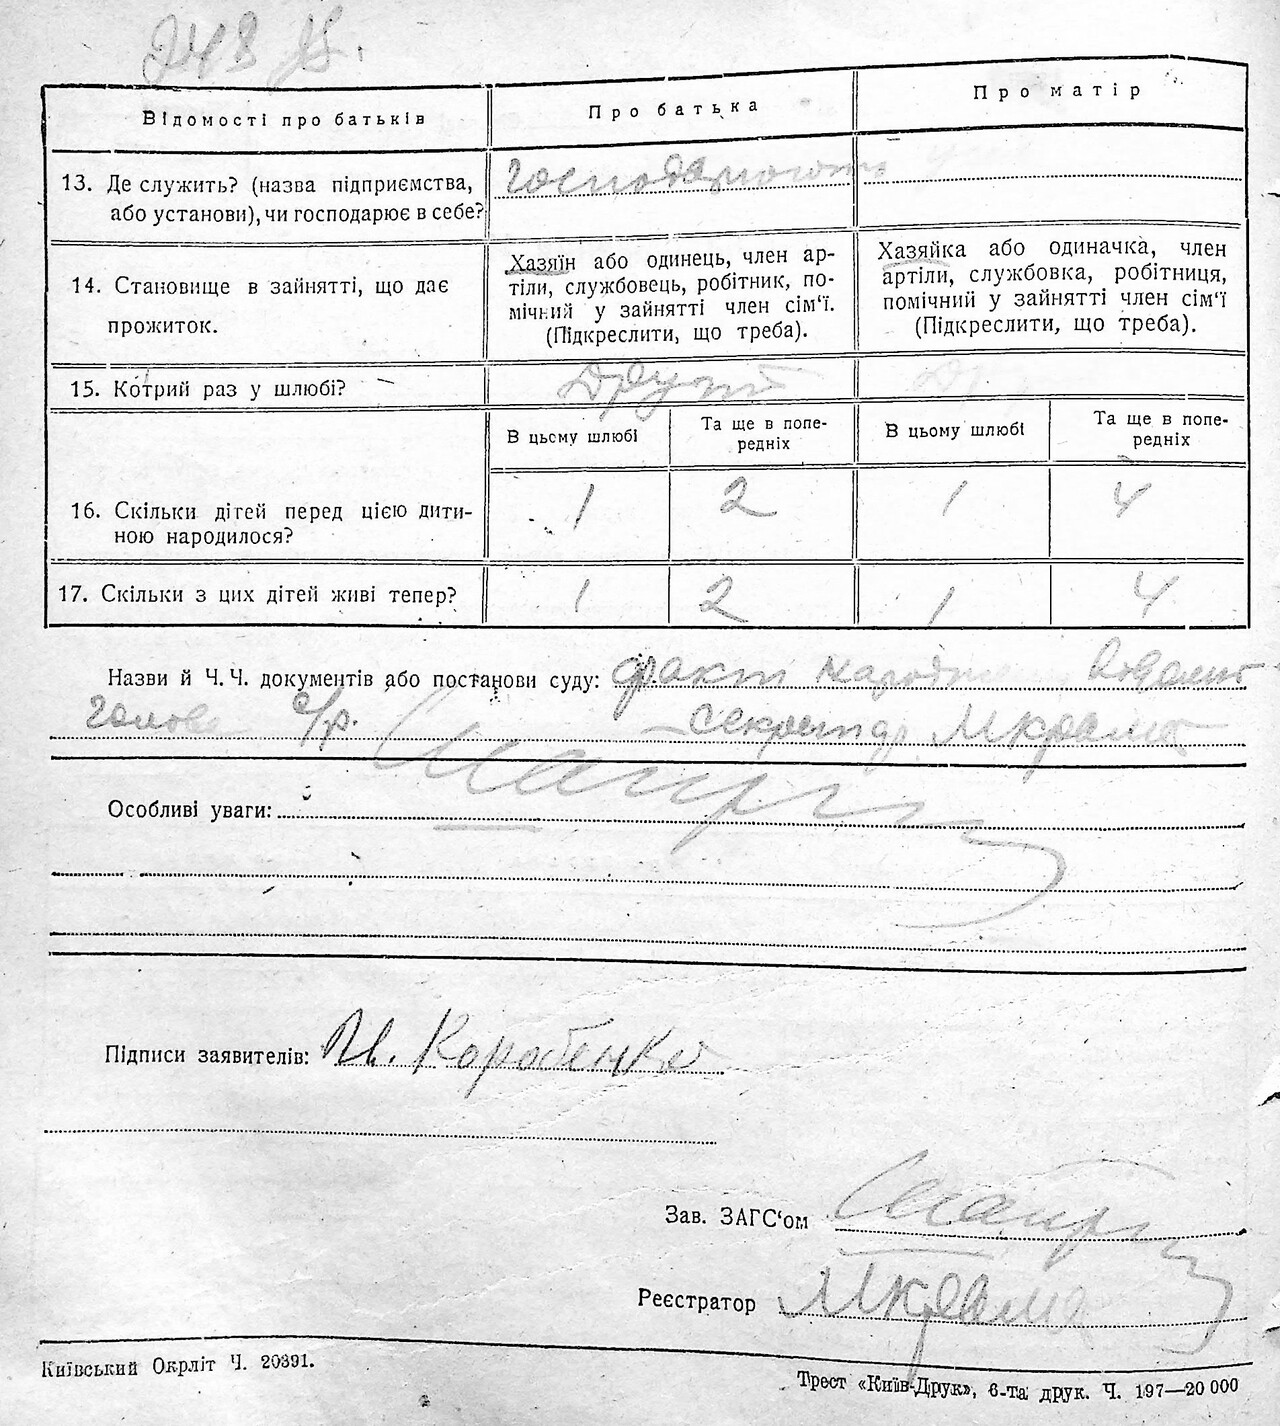 Відомості про батьків
Про батька
Про матір
13. Де служить? (назва підприємства,
або установи), чи господарює в себе?
Господарюють
14. Становище в зайнятті, що дає
прожиток.
Хазяїн або одинець, член ар-
тілі, службовець, робітник, по-
мічний у зайнятті член сім'ї.
(Підкреслити, що треба).
Хазяйка або одиначка, член
артіли, службовка, робітниця,
помічний у зайнятті член сім'ї
(Підкреслити, що треба).
15. Котрий раз у шлюбі?
Другий
В цьому шлюбі
Та ще в попе-
редніх
В цьому шлюбі
Та ще в попе-
редніх
16. Скільки дітей перед цією дити-
ною народилося?
1 2 1 4
17. Скільки з цих дітей живі тепер?
1 2 1 4
Назви й Ч. Ч. документів або постанови суду: факт
голова с/р. секретар
Особливі уваги:
Підписи заявителів: Коробенко
Зав. ЗАГС'ом
Реєстратор
Київський Окрліт Ч. 20391.
Трест «Київ-Друк», 6-та друк. Ч. 197—20 000